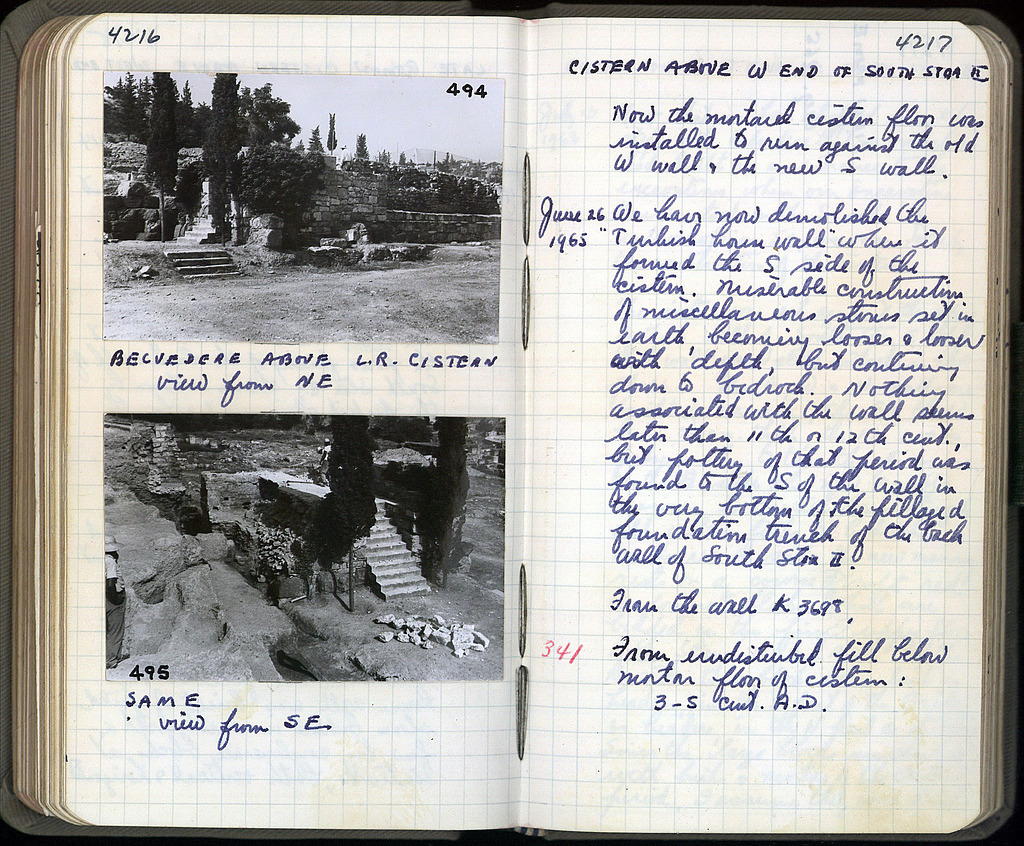 4216
494
BELVEDERE ABOVE L.R. CISTERN
view from NE
495
SAME
view from SE
4217
CISTERN ABOVE W END OF SOUTH STOA II
Now the mortared cistern floor was
installed to run against the old
W wall & the new S wall.
June 26 We have now demolished the
1965 "Turkish house wall" where it
formed the S side of the
cistern. Miserable construction
of miscellaneous stones set in
earth, becoming looser & looser
with depth, but continuing
down to bedrock. Nothing
associated with the wall seems
later than 11th or 12th cent.,
but pottery of that period was
found to the S of the wall in
the very bottom of the pillaged
foundation trench of the back
wall of South Stoa II.
From the wall K 3698.
341 From undisturbed fill below
mortar floor of cistern:
3-5 cent. A.D.